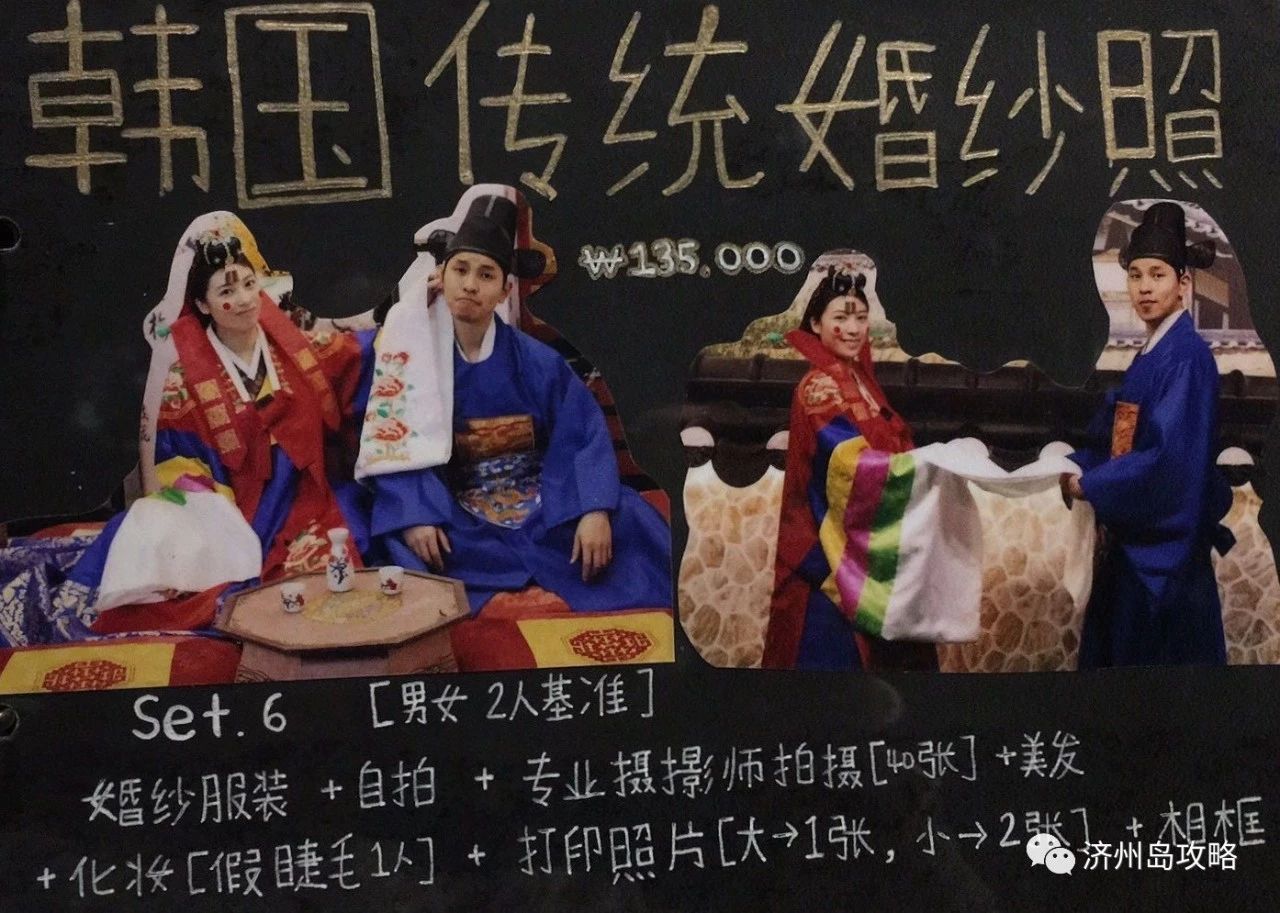 韩国传统婚纱照
₩135.000
Set.6 [男女 2人基准]
婚纱服装 + 自拍 + 专业摄影师拍摄[40张] + 美发
+ 化妆[假睫毛1人] + 打印照片[大→1张, 小→2张] + 相框
济州岛攻略